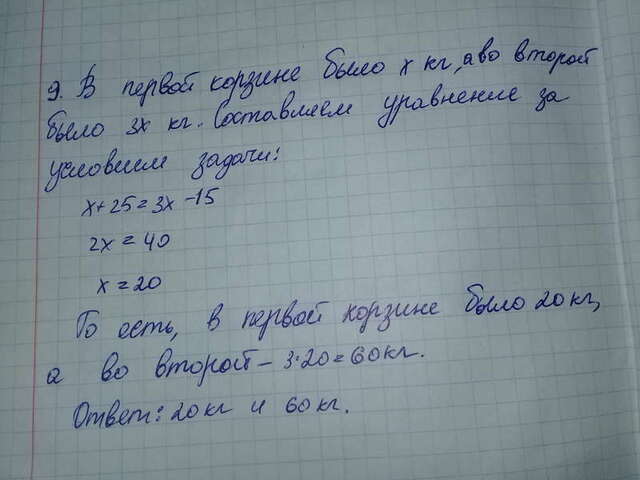 9. В первой корзине было x кг, а во второй
было 3x кг. Составляем уравнение за
условием задачи:
x+25=3x-15
2x=40
x=20
То есть, в первой корзине было 20 кг,
а во второй – 3·20=60кг.
Ответ: 20 кг и 60 кг.